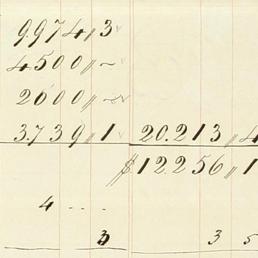 9.974,,3
4500,,~
2000,,~
3.739,,1 20.213,,4
$12.256,,1
4 ...
3 3 5